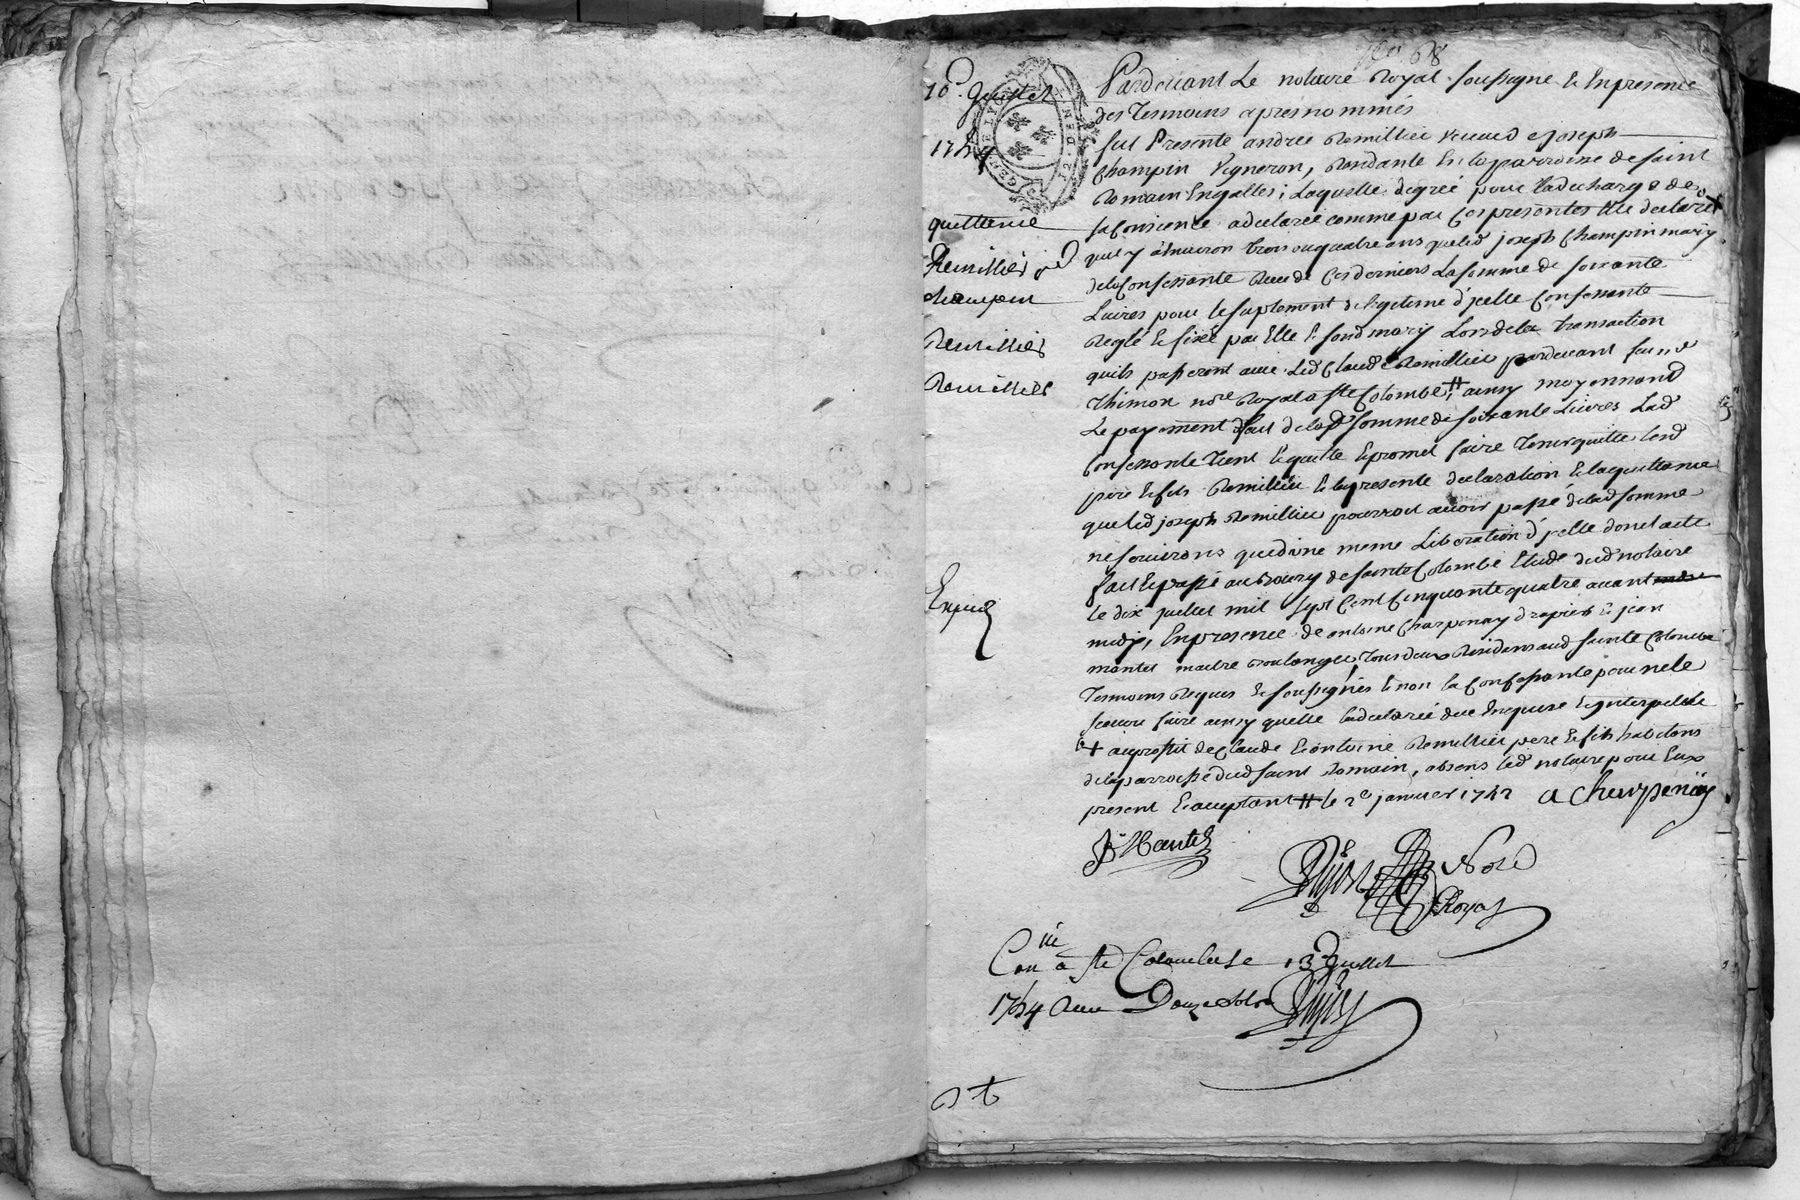 68
10e Juillet
1754
quittance
Remillier
champin
Remillier
Remillier
Expié
Pardevant Le notaire Royal soussigné & Enpresence
des Tesmoins apres nommés
fut Presente andrée Remillier veuve de joseph
champin Vigneron, Residante En la parroisse de saint
Romain Engalles; Laquelle de gré pour la decharge de
sa Consience a declarée comme par Ces presentes Elle declare +
quil y a Environ trois ou quatre ans que led joseph Champin mary
de la Confessante Receu de Ces derniers La somme de soixante
Livres pour le suplement de legitime d'jcelle Confessante
Reglé & fixé par Elle & sond mary Lors de la transaction
quils passeront avec led Claude Remillier pardevant feu me
Thimon nore Royal a ste Colombe # ainsy moyennand
Le payement fait de lad somme de soixante Livres Lad
Confessante Tient & quitte & promet faire Tenir quitte lesd
pere & fils Remillier & la presente declaration & la quittance
que led joseph Remillier pourroit avoir passé de lad somme
ne serviront que d'une meme Liberation d'jcelle dont acte
fait & passé au Bourg de sainte Colombe Etude dud notaire
le dix juillet mil sept Cent Cinquante quatre avant
midy, En presence de antoine Charpenay drapier & jean
mantel maitre Boulanger, Tous deux Residens aud sainte Colombe
Tesmoins Requis & soussignés & non la Confessante pour ne le
scavoir faire ainsy quelle la declarée de ce Enquise & jnterpellée
+ au proffit de Claude & antoine Remillier pere & fils habitans
de la parroisse dud saint Romain, absens led notaire pour Eux
present & acceptant # le 2e janvier 1742 a Charpenay
J Mantel
Nore
Royal
Con a ste Colombe le 13 Juillet
1754 Receu Douze sols